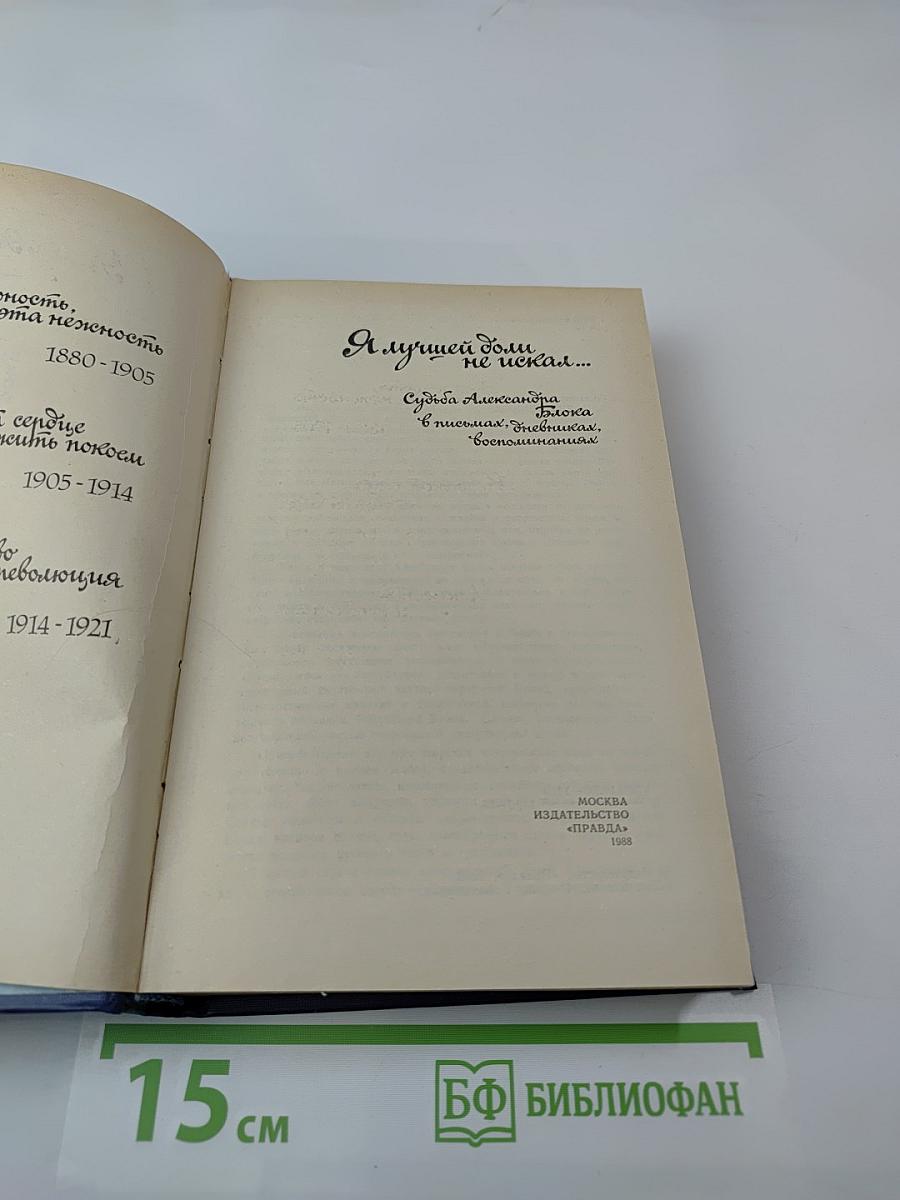 эта нежность
1880-1905
сердце
жить покоем
1905-1914
революция
1914-1921
Я лучшей доли
не искал...
Судьба Александра
Блока
в письмах, дневниках,
воспоминаниях
МОСКВА
ИЗДАТЕЛЬСТВО
«ПРАВДА»
1988
15 см
БФ БИБЛИОФАН